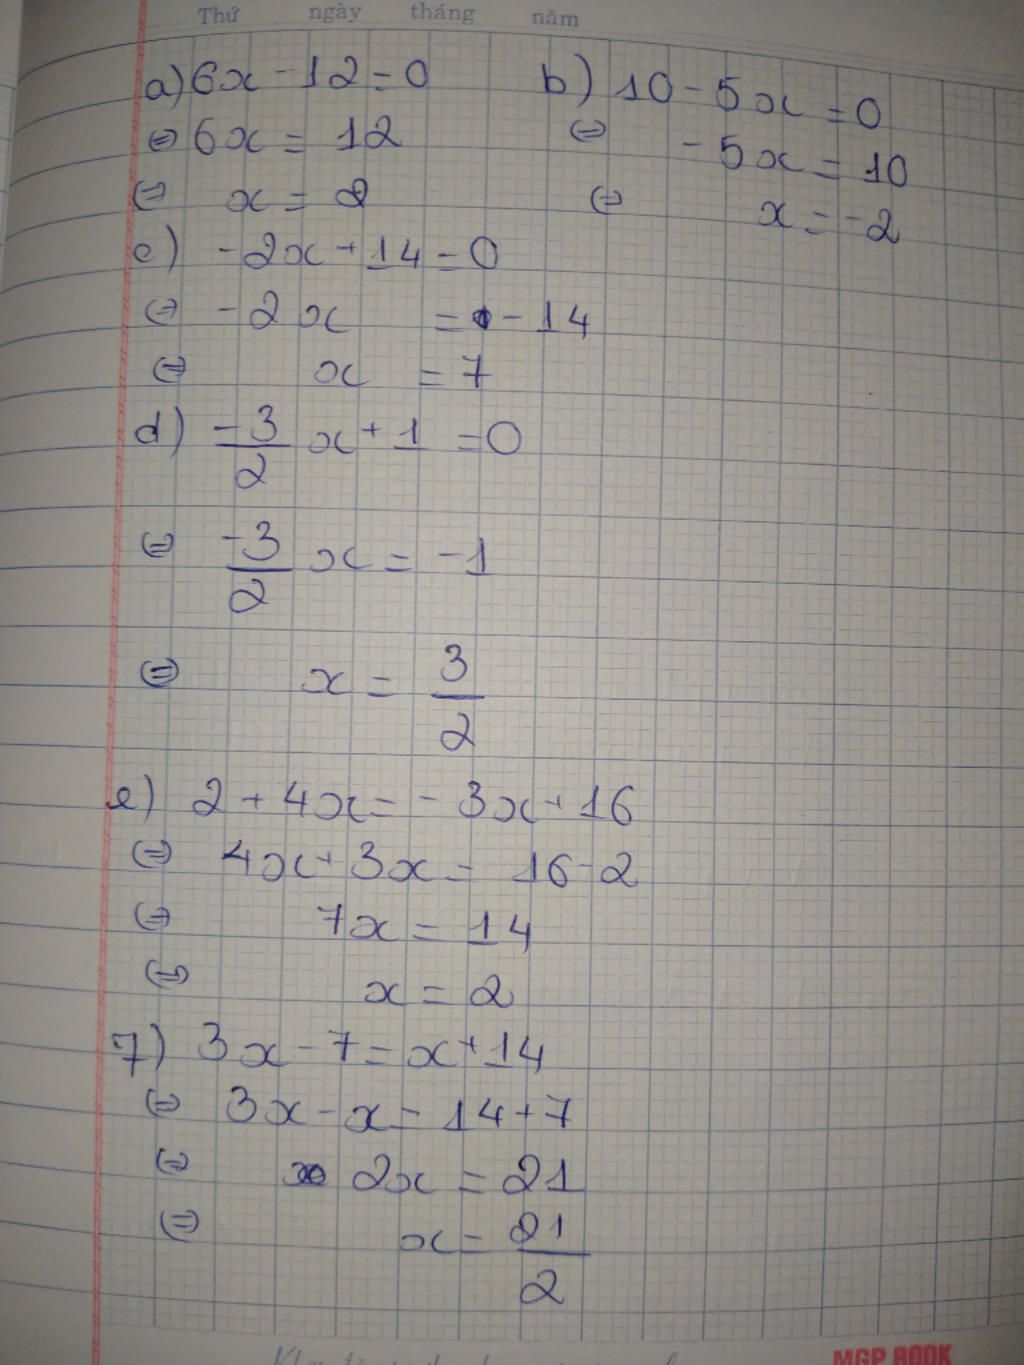 Thứ ngày tháng năm
a) 6x - 12 = 0
⇔ 6x = 12
⇔ x = 2
b) 10 - 5x = 0
⇔ - 5x = 10
⇔ x = - 2
c) - 2x + 14 = 0
⇔ - 2x = - 14
⇔ x = 7
d) -3/2 x + 1 = 0
⇔ -3/2 x = -1
⇔ x = 3/2
e) 2 + 4x = - 3x + 16
⇔ 4x + 3x = 16 - 2
⇔ 7x = 14
⇔ x = 2
7) 3x - 7 = x + 14
⇔ 3x - x = 14 + 7
⇔ 2x = 21
⇔ x = 21/2
MGP BOOK